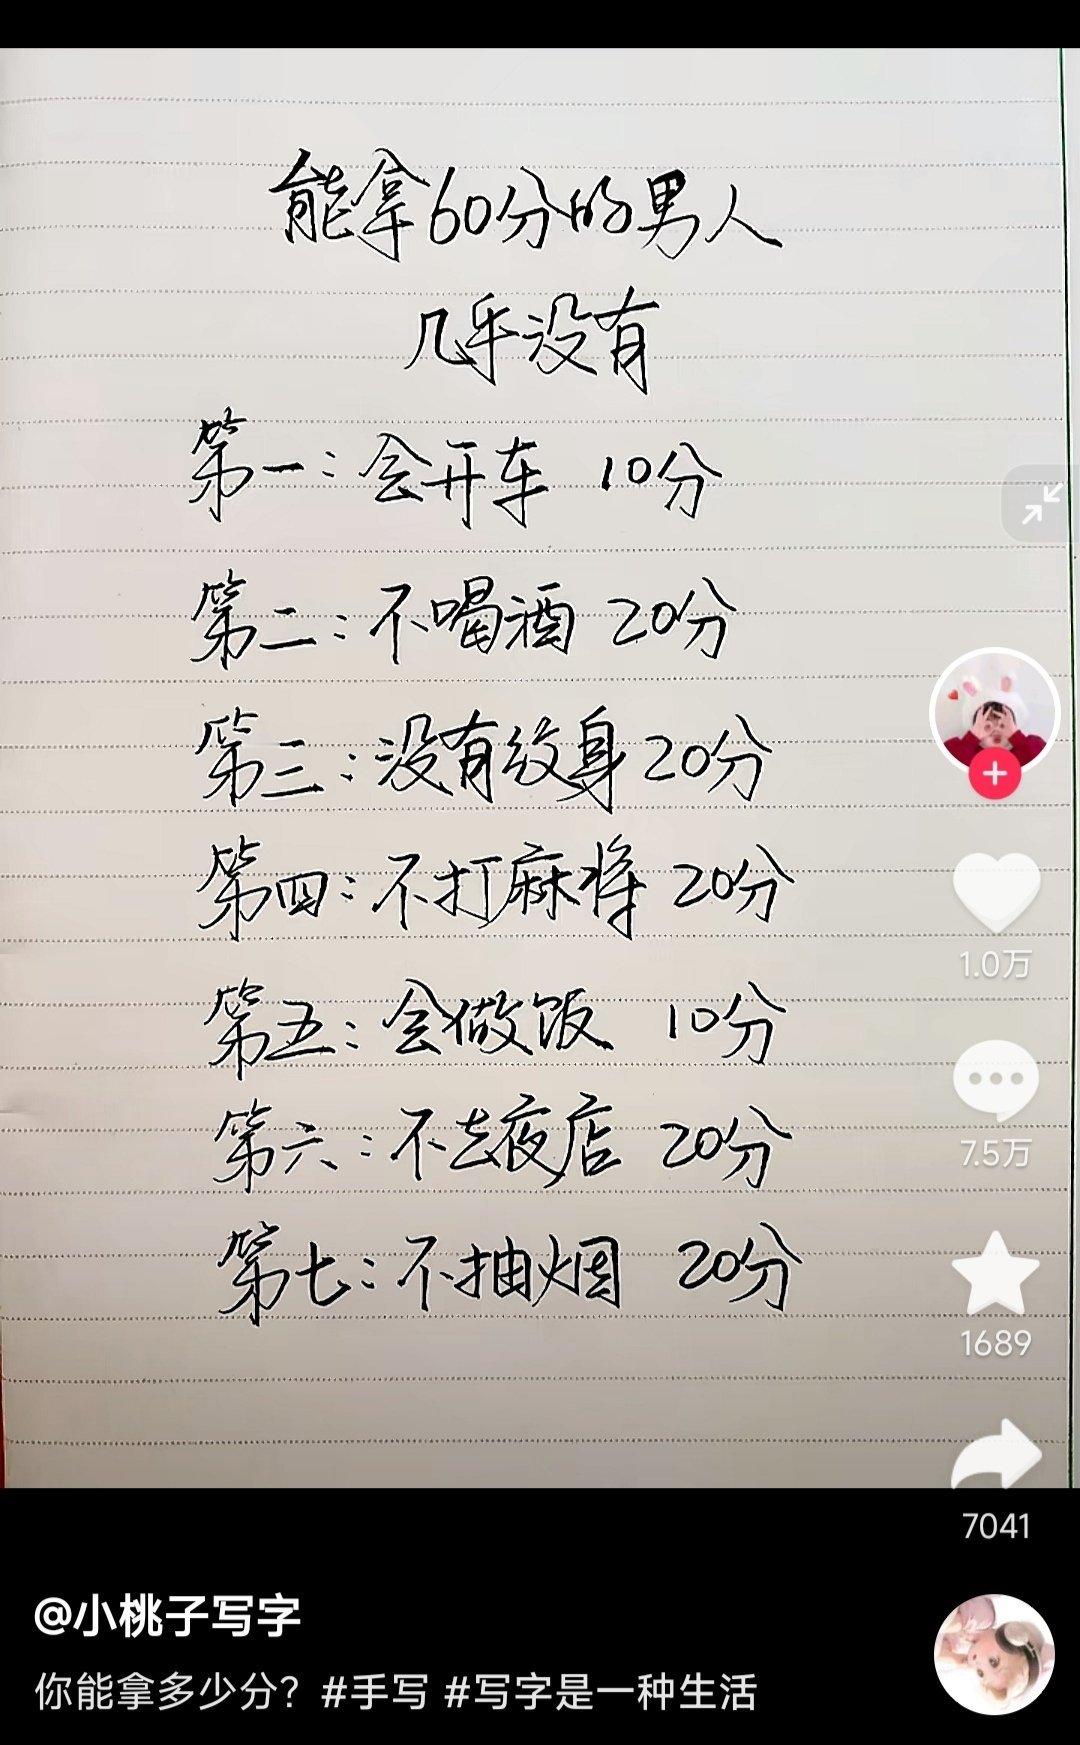 能拿60分的男人
几乎没有
第一:会开车 10分
第二:不喝酒 20分
第三:没有纹身20分
第四:不打麻将 20分
第五:会做饭 10分
第六:不去夜店 20分
第七:不抽烟 20分
1.0万
7.5万
1689
7041
@小桃子写字
你能拿多少分？#手写 #写字是一种生活